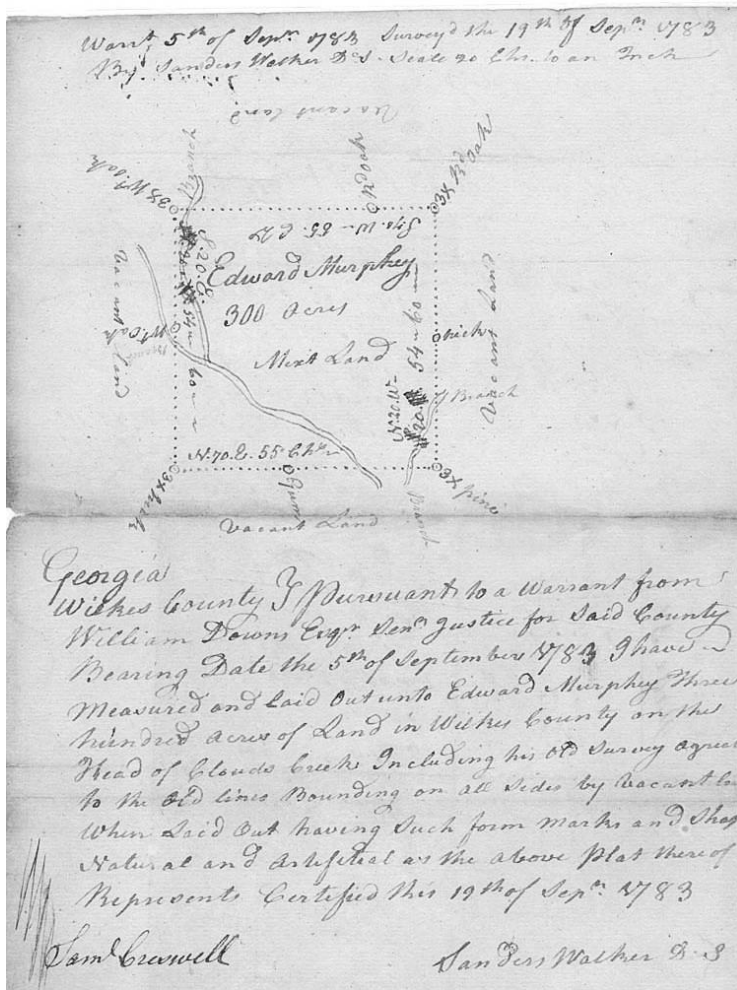 Warrt 5th of Sepr 1783 Survey'd the 19th of Sepr 1783
By Sanders Walker D.S - Scale 20 Chs. to an Inch
Vacant Land
Branch
3X Wt. Oak
R. Oak
3X Rd Oak
S 70 W 55. Ch
S. 20. E.
54 60
Edward Murphey
300 Acres
Mixt Land
Vacant Land
Wt. Oak
hick
Vacant Land
N. 20. W
54 60
Branch
N. 70. E. 55 Chs
3X hick
3X pine
Branch
Vacant Land
Georgia
Wilkes County } Pursuant to a Warrant from
William Downs Esqr. Senr Justice for Said County
Bearing Date the 5th of September 1783 I have
Measured and Laid Out unto Edward Murphey Three
hundred Acres of Land in Wilkes County on the
Head of Clouds Creek Including his Old Survey
to the Old lines Bounding on all Sides by Vacant
When Laid Out having Such form Marks and
Natural and Artifitial as the above Plat thereof
Represents Certified this 19th of Sepr. 1783
Saml Creswell
Sanders Walker D. S